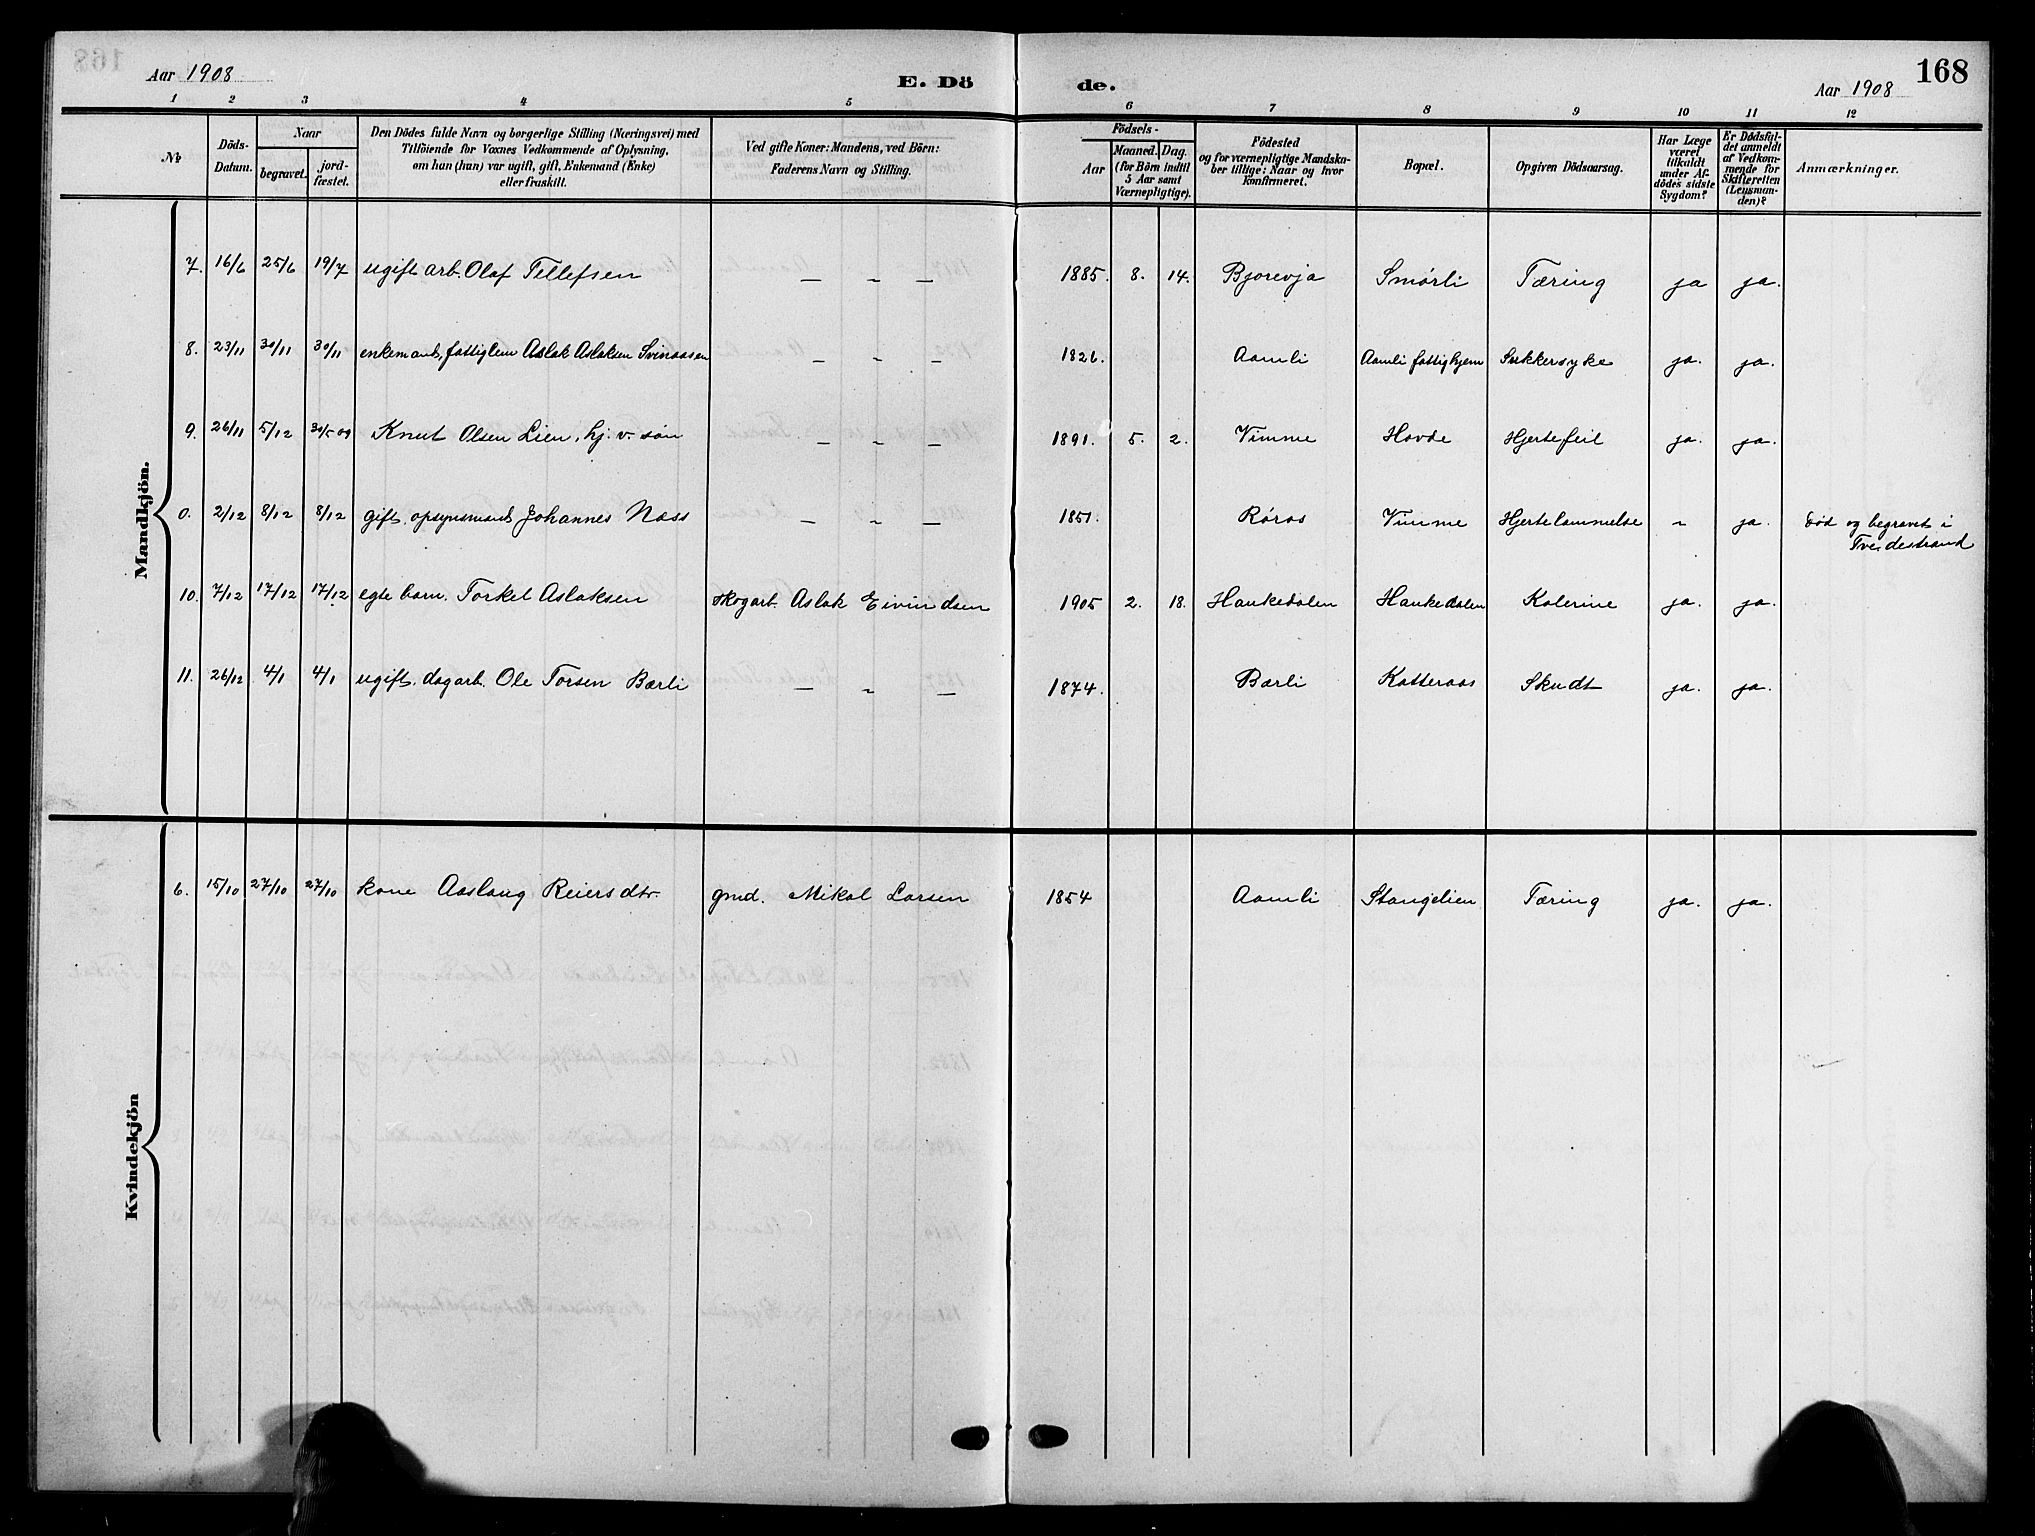 Aar 1908
E. Dö
de.
Aar 1908
168
1 2 3 4 5 6 7 8 9 10 11 12
No
Döds-Datum.
Naar
begravet.
jord-fæstet.
Den Dödes fulde Navn og borgerlige Stilling (Næringsvei) med
Tilföiende for Voxnes Vedkommende af Oplysning,
om han (hun) var ugift, gift, Enkemand (Enke)
eller fraskilt.
Ved gifte Koner: Mandens, ved Börn:
Faderens Navn og Stilling.
Födsels-
Aar
Maaned. Dag.
(for Börn indtil
5 Aar samt
Værnepligtige).
Födested
og for værnepligtige Mandska-
ber tillige: Naar og hvor
Konfirmeret.
Bopæl.
Opgiven Dödsaarsag.
Har Læge
været
tilkaldt
under Af-
dödes sidste
Sygdom?
Er Dödsfal-
det anmeldt
af Vedkom-
mende for
Skifteretten
(Lensman-
den)?
Anmærkninger.
Mandkjön.
7. 16/6 25/6 19/7 ugift arb. Olaf Tellefsen — „ — 1885. 8. 14. Bjorevja Smørli Tæring ja ja.
8. 23/11 30/11 30/11 enkemand, fattiglem Aslak Aslaksen Svinaasen — „ — 1826. Aamli Aamli fattighjem Sukkersyke ja. ja.
9. 26/11 5/12 30/5 09 Knut Olsen Lien, hj. v. søn — „ — 1891. 5. 2. Vimme Hovde Hjertefeil ja. ja.
0. 2/12 8/12 8/12 gift, opsynsmand Johannes Næss — „ — 1851. Røros Vimme Hjertelammelse „ ja. Død og begravet i
Tvedestrand
10. 7/12 17/12 17/12 egte barn. Torkel Aslaksen skogarb. Aslak Eivindsen 1905 2. 18. Haukedalen Haukedalen Kolerine ja. ja.
11. 26/12 4/1 4/1 ugift. dagarb. Ole Torsen Bærli — „ — 1874. Bærli Katteraas Skudt ja. ja.
Kvindekjön
6. 15/10 27/10 27/10 kone Aaslaug Reiersdtr. gmd. Mikal Larsen 1854 Aamli Stangelien Tæring ja. ja.